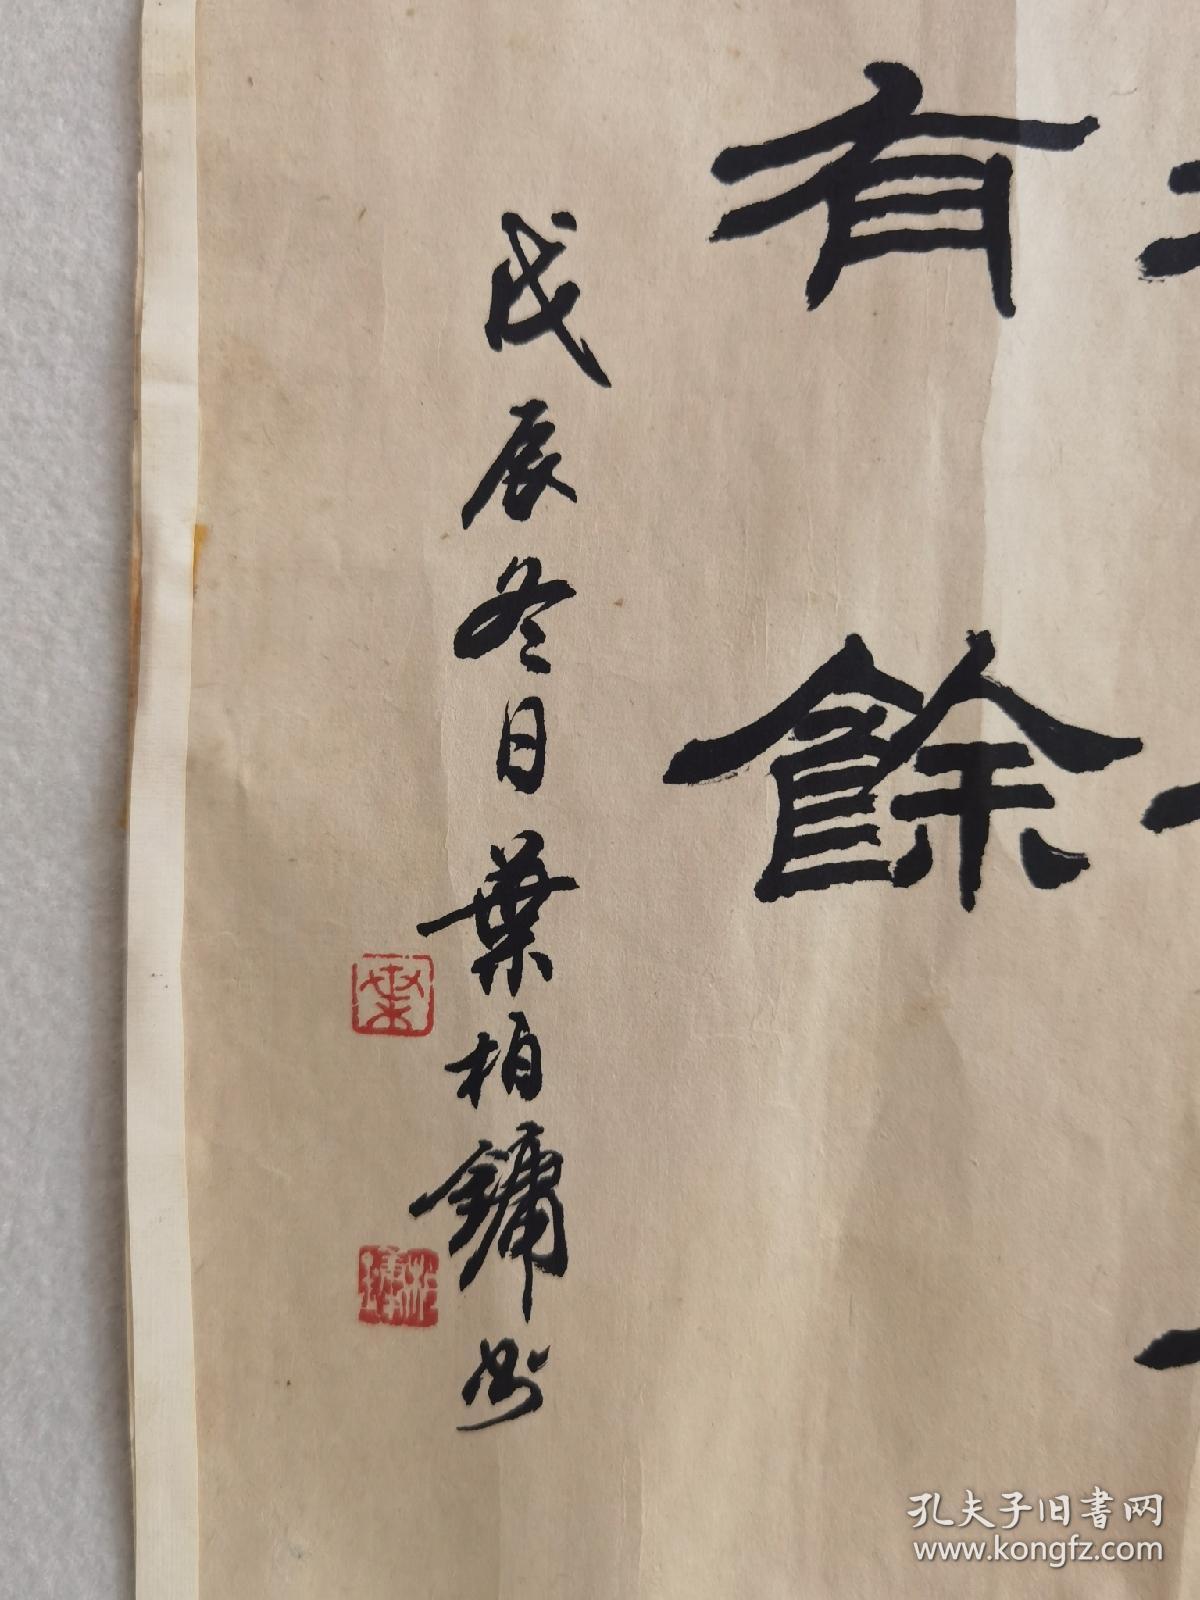 有餘
戊辰冬日葉柏鏞书
葉
柏鏞
孔夫子旧书网
www.kongfz.com